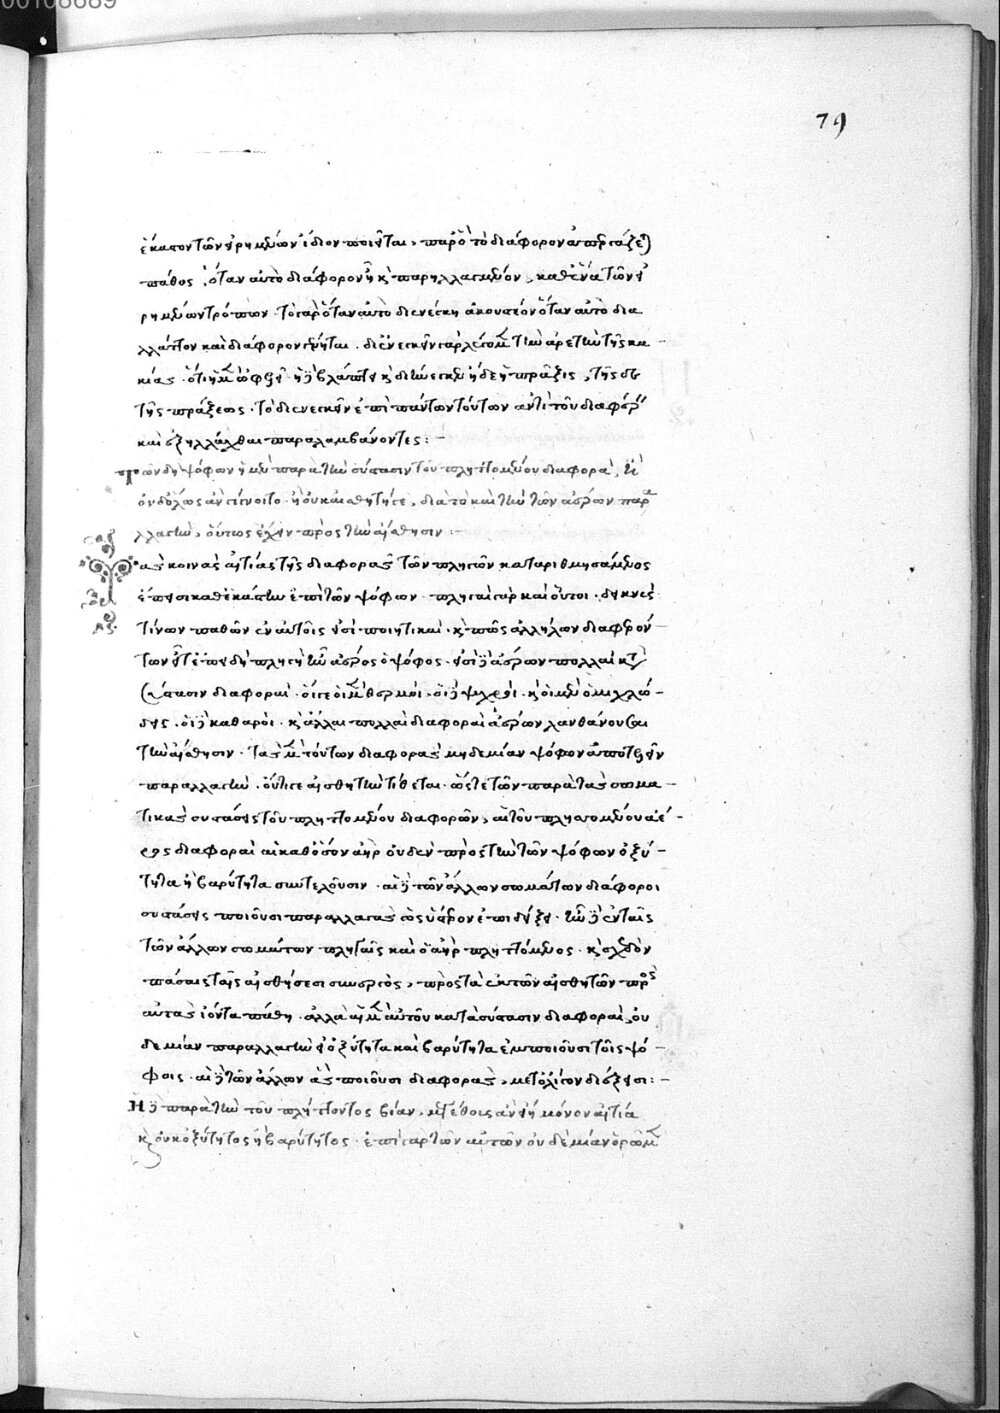 00108689
79
ἕκαστον τῶν εἰρημένων ἴδιον ποιεῖται, παρὸ τὸ διάφορον
πάθος, ὅταν αὐτὸ διάφορον ᾖ κ παρηλλαγμένον, καθ ἕνα τῶν εἰ
ρημένων τρόπων. τὸ γὰρ ὅταν αὐτὸ διενέγκῃ ἀκουστέον ὅταν αὐτὸ δια
λλάττον καὶ διάφορον γένηται. διενεγκεῖν γὰρ λέγομεν τὴν ἀρετὴν τῆς κα
κίας. ὅτι ἡ μὲν ὠφελεῖ ἡ δὲ βλάπτει κ διήνεγκεν ἥδε ἡ πρᾶξις, τῆσδε
τῆς πράξεως. τὸ διενεγκεῖν ἐπὶ πάντων τούτων ἀντὶ τοῦ διαφέρειν
καὶ ἐξηλλάχθαι παραλαμβάνοντες:
Τῶν δὴ ψόφων ἡ μὲν παρὰ τὴν σύστασιν τοῦ πληττομένου διαφορὰ, ἢ
οὐδ ὅλως ἂν γίγνοιτο ἢ οὐκ αἰσθητή γε, διὰ τὸ καὶ τὴν τῶν ἀέρων παρα
λλαγὴν, οὕτως ἔχειν πρὸς τὴν αἴσθησιν:
Τὰς κοινὰς αἰτίας τῆς διαφορᾶς τῶν πληγῶν καταριθμησάμενος
ἔπεισι καθ ἑκάστην ἐπὶ τῶν ψόφων. πληγαὶ γὰρ καὶ οὗτοι. δεικνὺς
τίνων παθῶν ἐν αὐτοῖς εἰσὶ ποιητικαὶ. κ πῶς ἀλλήλων διαφερόν
των ἐπειδὴ πληγὴ ἦν ἀέρος ὁ ψόφος. εἰσὶ δὲ ἀέρων πολλαὶ κατὰ
σύστασιν διαφοραὶ. οἵ γε οἱ μὲν θερμοὶ. οἱ δὲ ψυχροὶ. κ οἱ μὲν ὁμιχλώ
δεις. οἱ δὲ καθαροὶ. κ ἄλλαι πολλαὶ διαφοραὶ ἀέρων λανθάνουσαι
τὴν αἴσθησιν. τὰς μὲν τούτων διαφορὰς μηδεμίαν ψόφων ἀποτελεῖν
παραλλαγὴν. οὔτι γε αἰσθητὴν τίθεται. ὥστε τῶν παρὰ τὰς σωμα
τικὰς συστάσεις τοῦ πληττομένου διαφορῶν, αἱ τοῦ πληττομένου ἀέ
ρος διαφοραὶ αἱ καθόσον ἀὴρ οὐδὲν πρὸς τὴν τῶν ψόφων ὀξύ
τητα ἢ βαρύτητα συντελοῦσιν. αἱ δὲ τῶν ἄλλων σωμάτων διάφοροι
συστάσεις ποιοῦσι παραλλαγὰς ὡς ὕστερον ἐπιδείξει. ἦν δὲ ἐν ταῖς
τῶν ἄλλων σωμάτων πληγαῖς καὶ ὁ ἀὴρ πληττόμενος. κ σχεδὸν
πάσαις ταῖς αἰσθήσεσι συνεργὸς, πρὸς τὰ ἐκ τῶν αἰσθητῶν πρὸς
αὐτὰς ἰόντα πάθη. ἀλλὰ αἱ μὲν αὐτοῦ κατὰ σύστασιν διαφοραὶ, οὐ
δεμίαν παραλλαγὴν εἰς ὀξύτητα καὶ βαρύτητα ἐμποιοῦσι τοῖς ψό
φοις. αἱ δὲ τῶν ἄλλων ἃς ποιοῦσι διαφορὰς, μετ ὀλίγον διέξεισι:
Ἡ δὲ παρὰ τὴν τοῦ πλήττοντος βίαν, μεγέθους ἂν εἴη μόνον αἰτία
κ οὐκ ὀξύτητος ἢ βαρύτητος. ἐπὶ γὰρ τῶν αὐτῶν οὐδεμίαν ὁρῶμεν